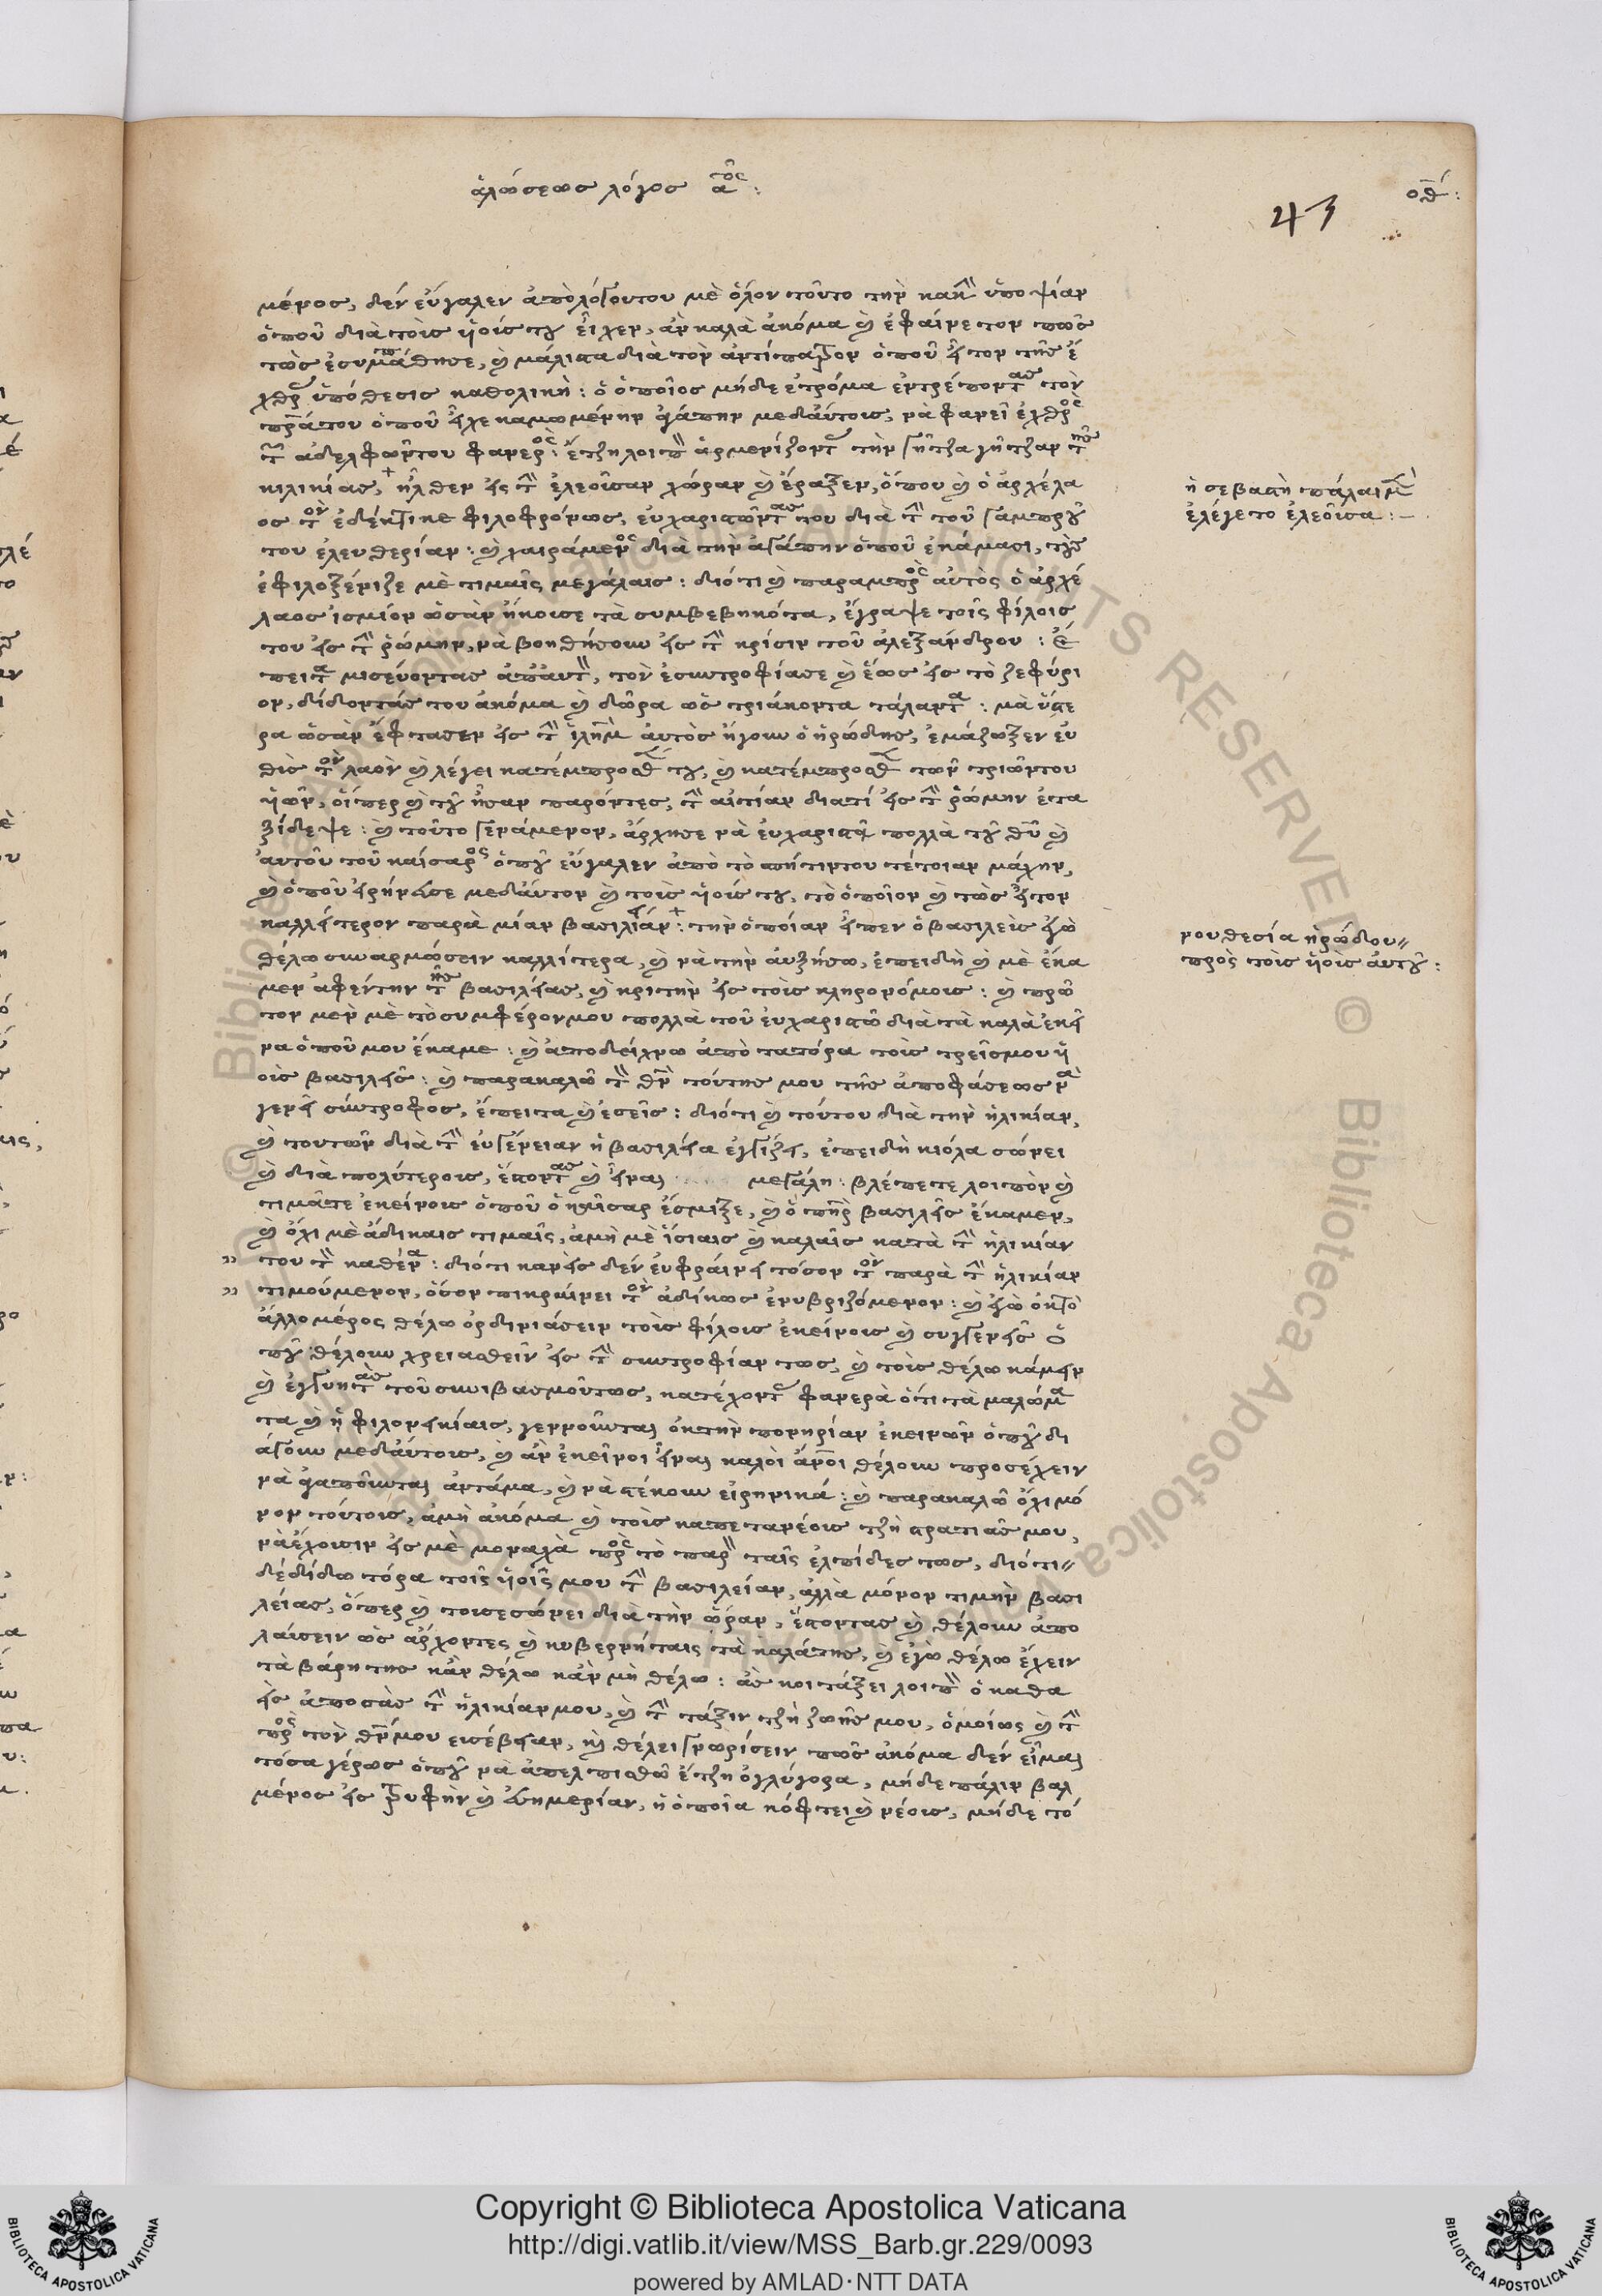 ἁλώσεως λόγος α^ος:
οθ΄:
43
μένος, δέν εὔγαλεν ἀπὸ λόγουτου μὲ ὅλον τοῦτο τὴν κακὴ ὑποψίαν
ὁποῦ διὰ τοὶς ὑοίς του εἶχεν, ἂν καλὰ ἀκόμα καὶ ἐφαίνετον πῶς
τὼς ἐσυμπάθησε, καὶ μάλιστα διὰ τὸν ἀντίπατρον ὁποῦ ἦτον τῆς ἔ
χθρ ὑπόθεσις καθολικὴ: ὁ ὁποῖος μήδε ἐτρόμα ἐντρέποντας τὸν
πρᾶτον ὁποῦ εἶχε καμωμένην ἀγάπην μεδαύτοις, νὰ φανεῖ ἐχθρὸς
τῶν ἀδελφῶντου φανερὸς: ἔτζη λοιπὸν ἀρμενίζοντας τὴν γῆτζα γῆτζαν τῆς
κιλικίας, + ἦλθεν εἰς τὴν ἐλεοῦσαν χώραν καὶ ἔραξεν, ὅπου καὶ ὁ ἀρχέλα
ος τὸν ἐδέκτικε φιλοφρόνως, εὐχαριστῶντας του διὰ τὴν τοῦ γαμπροῦ
του ἐλευθερίαν: καὶ χαιράμενος διὰ τὴν ἀγάπην ὁποῦ ἐκάμασι, τοὺς
ἐφιλοξένιζε μὲ τιμαῖς μεγάλαις: διότι καὶ παραμπρὸς αὐτὸς ὁ ἀρχέ
λαος ἰσμίον ὡσὰν ἤκουσε τὰ συμβεβηκότα, ἔγραψε τοῖς φίλοις
του εἰς τὴν ῥώμην, νὰ βοηθήσουν εἰς τὴν κρίσιν τοῦ ἀλεξάνδρου: ἔ
πειτα μισεύοντας ἀπαυτ, τὸν ἐσυντροφίασε καὶ ἕως εἰς τὸ ζεφύρι
ον, δίδοντάς του ἀκόμα καὶ δῶρα ὡς τριάκοντα τάλαντα: μὰ ὕστε
ρα ὡσὰν ἔφτασεν εἰς τὴν ἱλημ αὐτὸς ἤγουν ὁ ἡρώδης, ἐμάζωξεν εὐ
θὶς τὸν λαὸν καὶ λέγει κατέμπροσθέ του, καὶ κατέμπροσθε τῶν τριῶντου
ὑῶν, οἵπερ καὶ τοῦ ἦσαν παρόντες, τὴν αἰτίαν διατί εἰς τὴν ῥώμην ἐτα
ξίδεψε: καὶ τοῦτο γενάμενον, ἄρχησε νὰ εὐχαριστᾶ πολλὰ τοῦ θεοῦ καὶ
αὐτοῦ τοῦ καίσαρος ὁποῦ εὔγαλεν ἀπὸ τὸ σπήτιντου τέτοιαν μάχην,
καὶ ὁποῦ εἰρήνεισε μεδαύτον καὶ τοὶς ὑοίς του, τὸ ὁποῖον καὶ τὼς ἦτον
καλλίτερον παρὰ μίαν βασιλείαν:+ τὴν ὁποίαν εἶπεν ὁ βασιλεὶς ἐγὼ
θέλω συναρμώσειν καλλίτερα, καὶ νὰ τὴν αὐξήσω, ἐπειδὴ καὶ μὲ ἔκα
μεν ἀφέντην τῆς βασιλείας, καὶ κριτὴν εἰς τοὶς κληρονόμοις: καὶ πρῶ
τον μεν μὲ τὸ συμφέρονμου πολλὰ τοῦ εὐχαριστῶ διὰ τὰ καλὰ ἐκεῖ
να ὁποῦ μου ἔκαμε: καὶ ἀποδείχνω ἀπὸ τατόρα τοὶς τρεῖσμου ὑ
οὶς βασιλεῖς: καὶ παρακαλῶ τὸν θεὸν τούτης μου τῆς ἀποφάσεως νὰ
γενεῖ σύντροφος, ἔπειτα καὶ ἐσεῖς: διότι καὶ τούτου διὰ τὴν ἡλικίαν,
καὶ τουτῶν διὰ τὴν εὐγένειαν ἡ βασιλεία ἐγγίζει, ἐπειδὴ κιόλα σώνει
καὶ διὰ πολύτεροις, ἔστοντας καὶ εἶναι μεγάλη: βλέπετε λοιπὸν καὶ
τιμᾶτε ἐκείνοις ὁποῦ ὁ καῖσαρ ἔσμιξε, καὶ ὁ πὴρ βασιλεῖς ἔκαμεν,
καὶ ὄχι μὲ ἄδικαις τιμαῖς, ἀμὴ μὲ ἴσιαις καὶ καλαῖς κατὰ τὴν ἡλικίαν
" του τὴν καθένα: διότι κανεὶς δέν εὐφραίνει τόσον τὸν παρὰ τὴν ἡλικίαν
" τιμούμενον, ὅσον πικραίνει τὸν ἀδίκως ἐνυβριζόμενον: καὶ ἐγὼ ὀκτὸ
ἄλλο μέρος θέλω ὀρδινιάσειν τοὶς φίλοις ἐκείνοις καὶ συγγενεῖς ὁ
ποῦ θέλουν χρειασθεῖν εἰς τὴν συντροφίαν τως, καὶ τοὶς θέλω κάμειν
καὶ ἐγγυητὰς τοῦ συνιβασμοῦτως, κατέχοντας φανερὰ ὅτι τὰ μαλώμα
τα καὶ ἡ φιλονεικίαις, γεννοῦνται ὀκτὴν πονηρίαν ἐκεινῶν ὁποῦ δι
άγουν μεδαύτοις, καὶ ἂν ἐκεῖνοι εἶναι καλοὶ ἄνοι θέλουν προσέχειν
νὰ ἀγαποῦνται ἀντάμα, καὶ νὰ στέκουν εἰρηνικά: καὶ παρακαλῶ ὄχι μό
νον τούτοις, ἀμὴ ἀκόμα καὶ τοὶς καπετανέοις τζὴ στρατιᾶς μου,
νὰ ἔχουσιν εἰς μὲ μοναχὰ πρὸς τὸ παρὸν ταῖς ἐλπίδες τως, διότι
δέ δίδω τόρα τοῖς ὑοῖς μου τὴν βασιλείαν, ἀλλὰ μόνον τιμὴν βασι
λείας, ὅπερ καὶ τοισεσώνει διὰ τὴν ὥραν, ἔστοντας καὶ θέλουν ἀπο
λαύσειν ὡς ἄρχοντες καὶ κυβερνήταις τὰ καλάτης, καὶ ἐγὼ θέλω ἔχειν
τὰ βάρη της κἂν θέλω κἂν μὴ θέλω: ἂς κοιτάξει λοιπὸν ὁ καθα
εἰς ἀποσὰς τὴν ἡλικίαν μου, καὶ τὴν τάξιν τζὴ ζωῆς μου, ὁμοίως καὶ τὴν
πρὸς τὸν θν μου εὐσέβειαν, καὶ θέλει γνωρίσειν πῶς ἀκόμα δέν εἶμαι
τόσα γέρως ὁποῦ νὰ ἀπελπισθῶ ἔτζη ὀγλύγορα, μήδε πάλιν βαλ
μένος εἰς τρυφὴν καὶ εὐημερίαν, ἡ ὁποῖα κόφτει καὶ νέοις, μήδε τό
ἡ σεβαστὴ πάλαι μὲν
ἐλέγετο ἐλεοῦσα:
νουθεσία ἡρώδου
πρὸς τοις ὑοὶς αὐτοῦ:
© Biblioteca Apostolica Vaticana ALL RIGHTS RESERVED
Copyright © Biblioteca Apostolica Vaticana
http://digi.vatlib.it/view/MSS_Barb.gr.229/0093
powered by AMLAD·NTT DATA
BIBLIOTECA APOSTOLICA VATICANA
BIBLIOTECA APOSTOLICA VATICANA